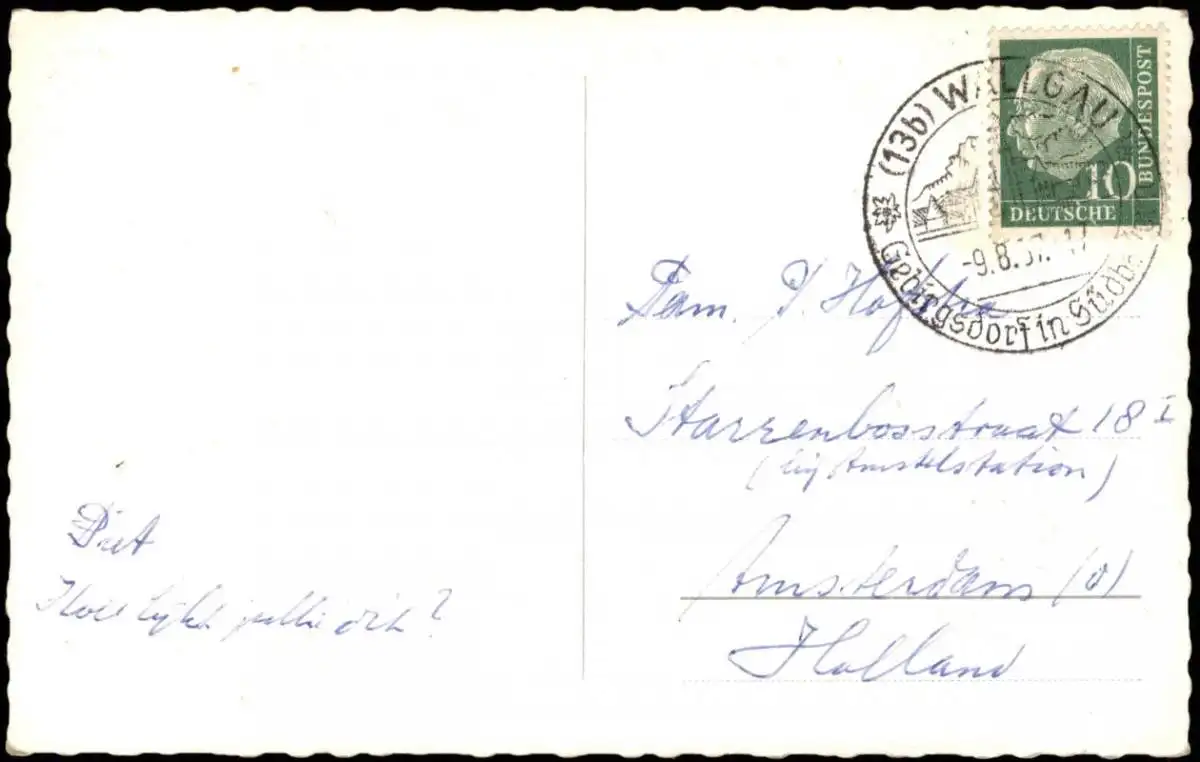 BUNDESPOST
10
DEUTSCHE
(13b) WALLGAU
-9.8.57.-17
Gebirgsdorf in Südb
Fam. P. Hofstra
Starrenbosstraat 18 I
(bij Amstelstation)
Amsterdam (O)
Holland
Piet
Hoe lijkt jullie dit?